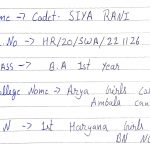 me → Cadet. SIYA RANI
. No → HR/20/SWA/221126
ASS → B.A 1st Year
ollege Name → Arya Girls Co
Ambala can
N → 1st Haryana Girls
BN